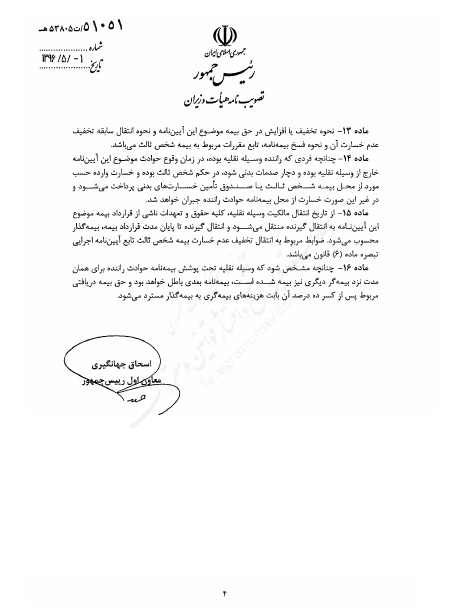 ۵۱۰۵۱/ت۵۳۸۰۵هـ
شماره
۱۳۹۶/۵/-۱
تاریخ
جمهوری اسلامی ایران
رئیس جمهور
تصویب نامه هیأت وزیران
ماده ۱۳- نحوه تخفیف یا افزایش در حق بیمه موضوع این آیین‌نامه و نحوه انتقال سابقه تخفیف
عدم خسارت آن و نحوه فسخ بیمه‌نامه، تابع مقررات مربوط به بیمه شخص ثالث می‌باشد.
ماده ۱۴- چنانچه فردی که راننده وسیله نقلیه بوده، در زمان وقوع حوادث موضوع این آیین‌نامه
خارج از وسیله نقلیه بوده و دچار صدمات بدنی شود، در حکم شخص ثالث بوده و خسارت وارده حسب
مورد از محل بیمه شخص ثالث یا صندوق تأمین خسارت‌های بدنی پرداخت می‌شود و
در غیر این صورت خسارت از محل بیمه‌نامه حوادث راننده جبران خواهد شد.
ماده ۱۵- از تاریخ انتقال مالکیت وسیله نقلیه، کلیه حقوق و تعهدات ناشی از قرارداد بیمه موضوع
این آیین‌نامه به انتقال گیرنده منتقل می‌شود و انتقال گیرنده تا پایان مدت قرارداد بیمه، بیمه‌گذار
محسوب می‌شود. ضوابط مربوط به انتقال تخفیف عدم خسارت بیمه شخص ثالث تابع آیین‌نامه اجرایی
تبصره ماده (۶) قانون می‌باشد.
ماده ۱۶- چنانچه مشخص شود که وسیله نقلیه تحت پوشش بیمه‌نامه حوادث راننده برای همان
مدت نزد بیمه‌گر دیگری نیز بیمه شده است، بیمه‌نامه بعدی باطل خواهد بود و حق بیمه دریافتی
مربوط پس از کسر ده درصد آن بابت هزینه‌های بیمه‌گری به بیمه‌گذار مسترد می‌شود.
اسحاق جهانگیری
معاون اول رییس‌جمهور
۴